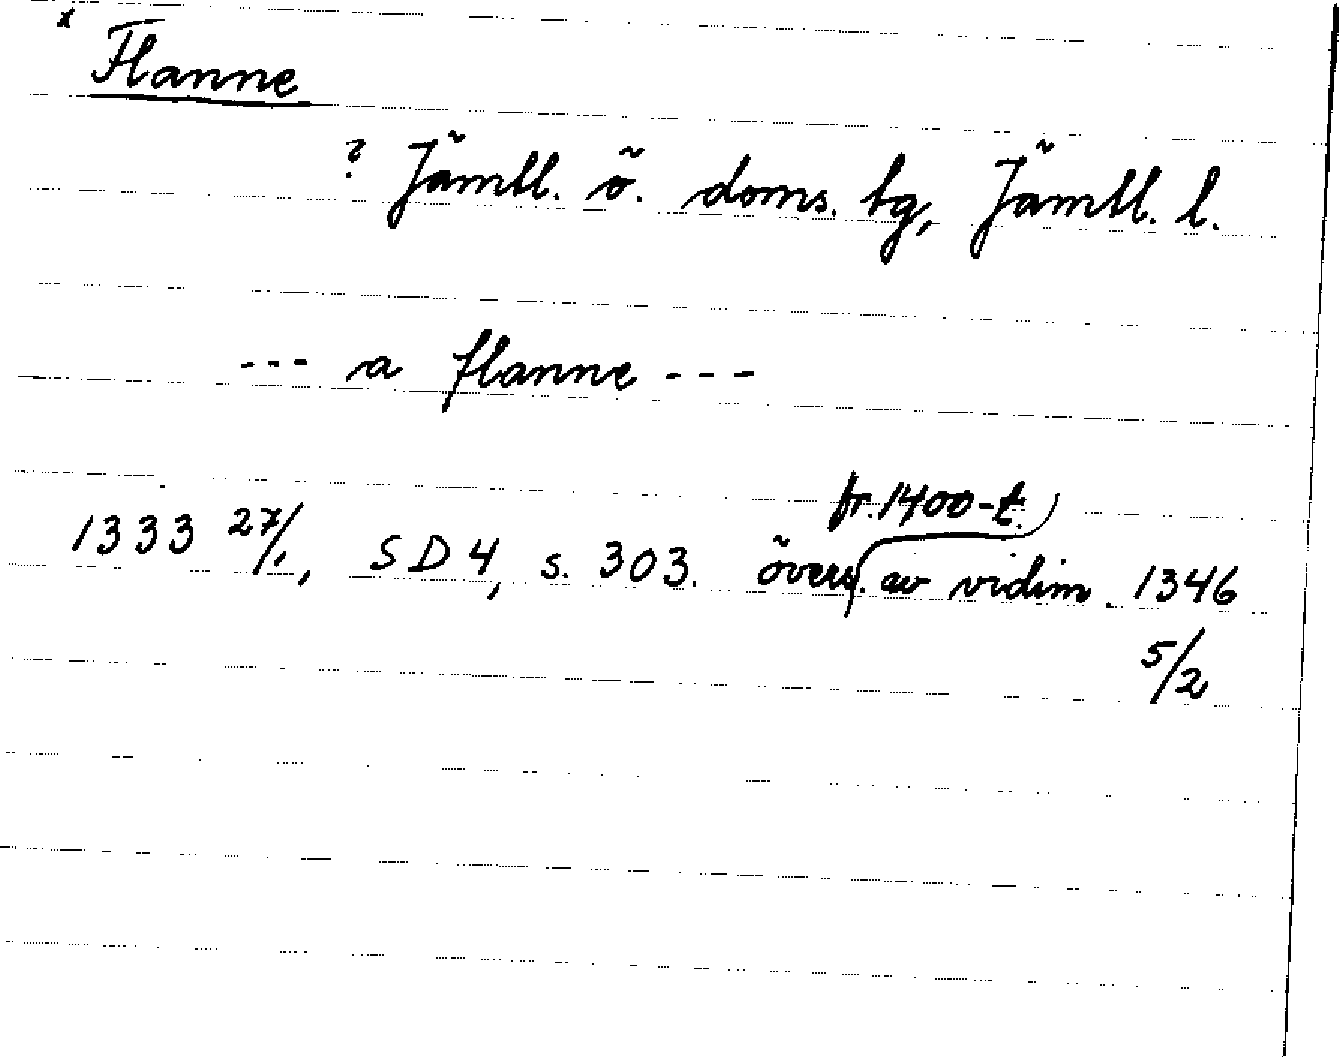 x
Flanne
? Jämtl. ö. doms. tg, Jämtl. l.
--- a flanne ---
fr. 1400-t.
1333 27/1, SD 4, s. 303. övers. av vidim. 1346
5/2